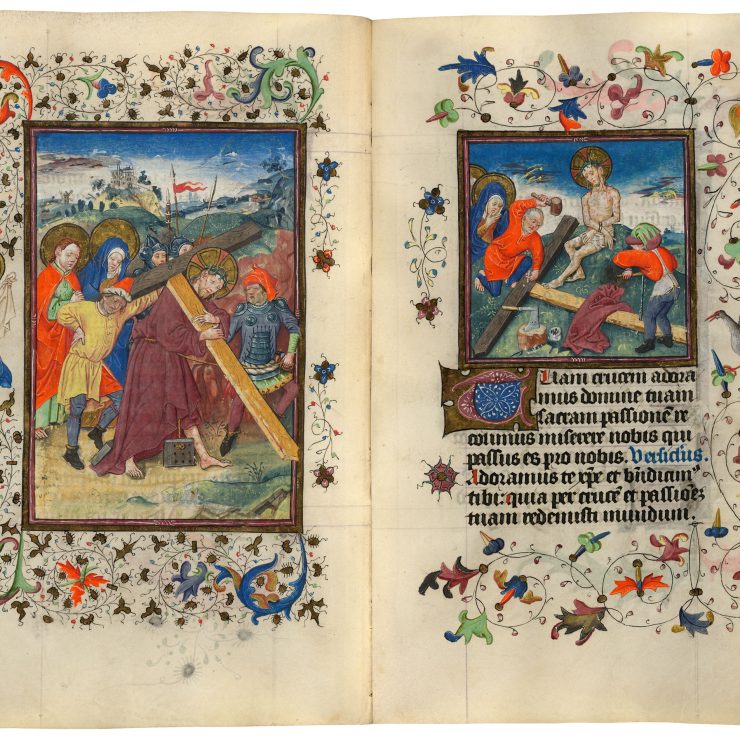 Tuam crucem adora
mus domine tuam
sacram passionē re
colimus miserere nobis qui
passus es pro nobis. Versiculus.
Adoramus te xpē et bn̄dicim᷒
tibi: quia per crucē et passionē
tuam redemisti mundum.